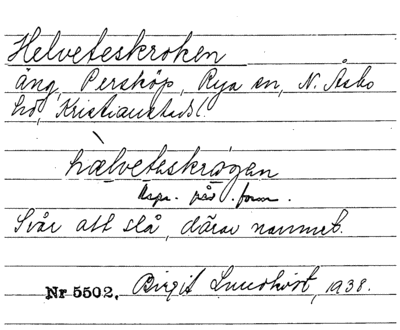 Helveteskroken
äng, Perstorp, Rya sn, N. Åsbo
hd, Kristianstads l.
hælveteskrogen
Uppr. form.
Svår att slå, därav namnet.
Nr 5502. Birgit Lundkvist, 1938.